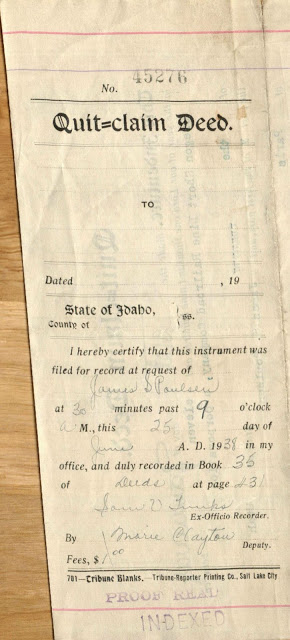 No. 45276
Quit=claim Deed.
TO
Dated , 19
State of Idaho,
County of ss.
I hereby certify that this instrument was
filed for record at request of
James S Paulsen
at 30 minutes past 9 o'clock
A M., this 25 day of
June A. D. 1938 in my
office, and duly recorded in Book 35
of Deeds at page 431
Ex-Officio Recorder.
By Marie Clayton
Deputy.
Fees, $1.00
701—Tribune Blanks.—Tribune-Reporter Printing Co., Salt Lake City
PROOF READ
INDEXED